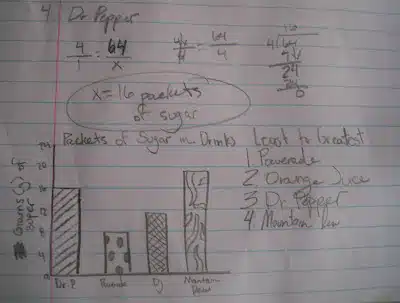 4 Dr Pepper
4/1 = 64/x
4x/4 = 64/4
16
4√64
4↓
24
24
0
x = 16 packets
of sugar
Packets of Sugar in Drinks
Least to Greatest
1. Powerade
2. Orange Juice
3. Dr. Pepper
4. Mountain Dew
Grams (g) of
sugar
Dr. P
OJ
Mountain
Dew